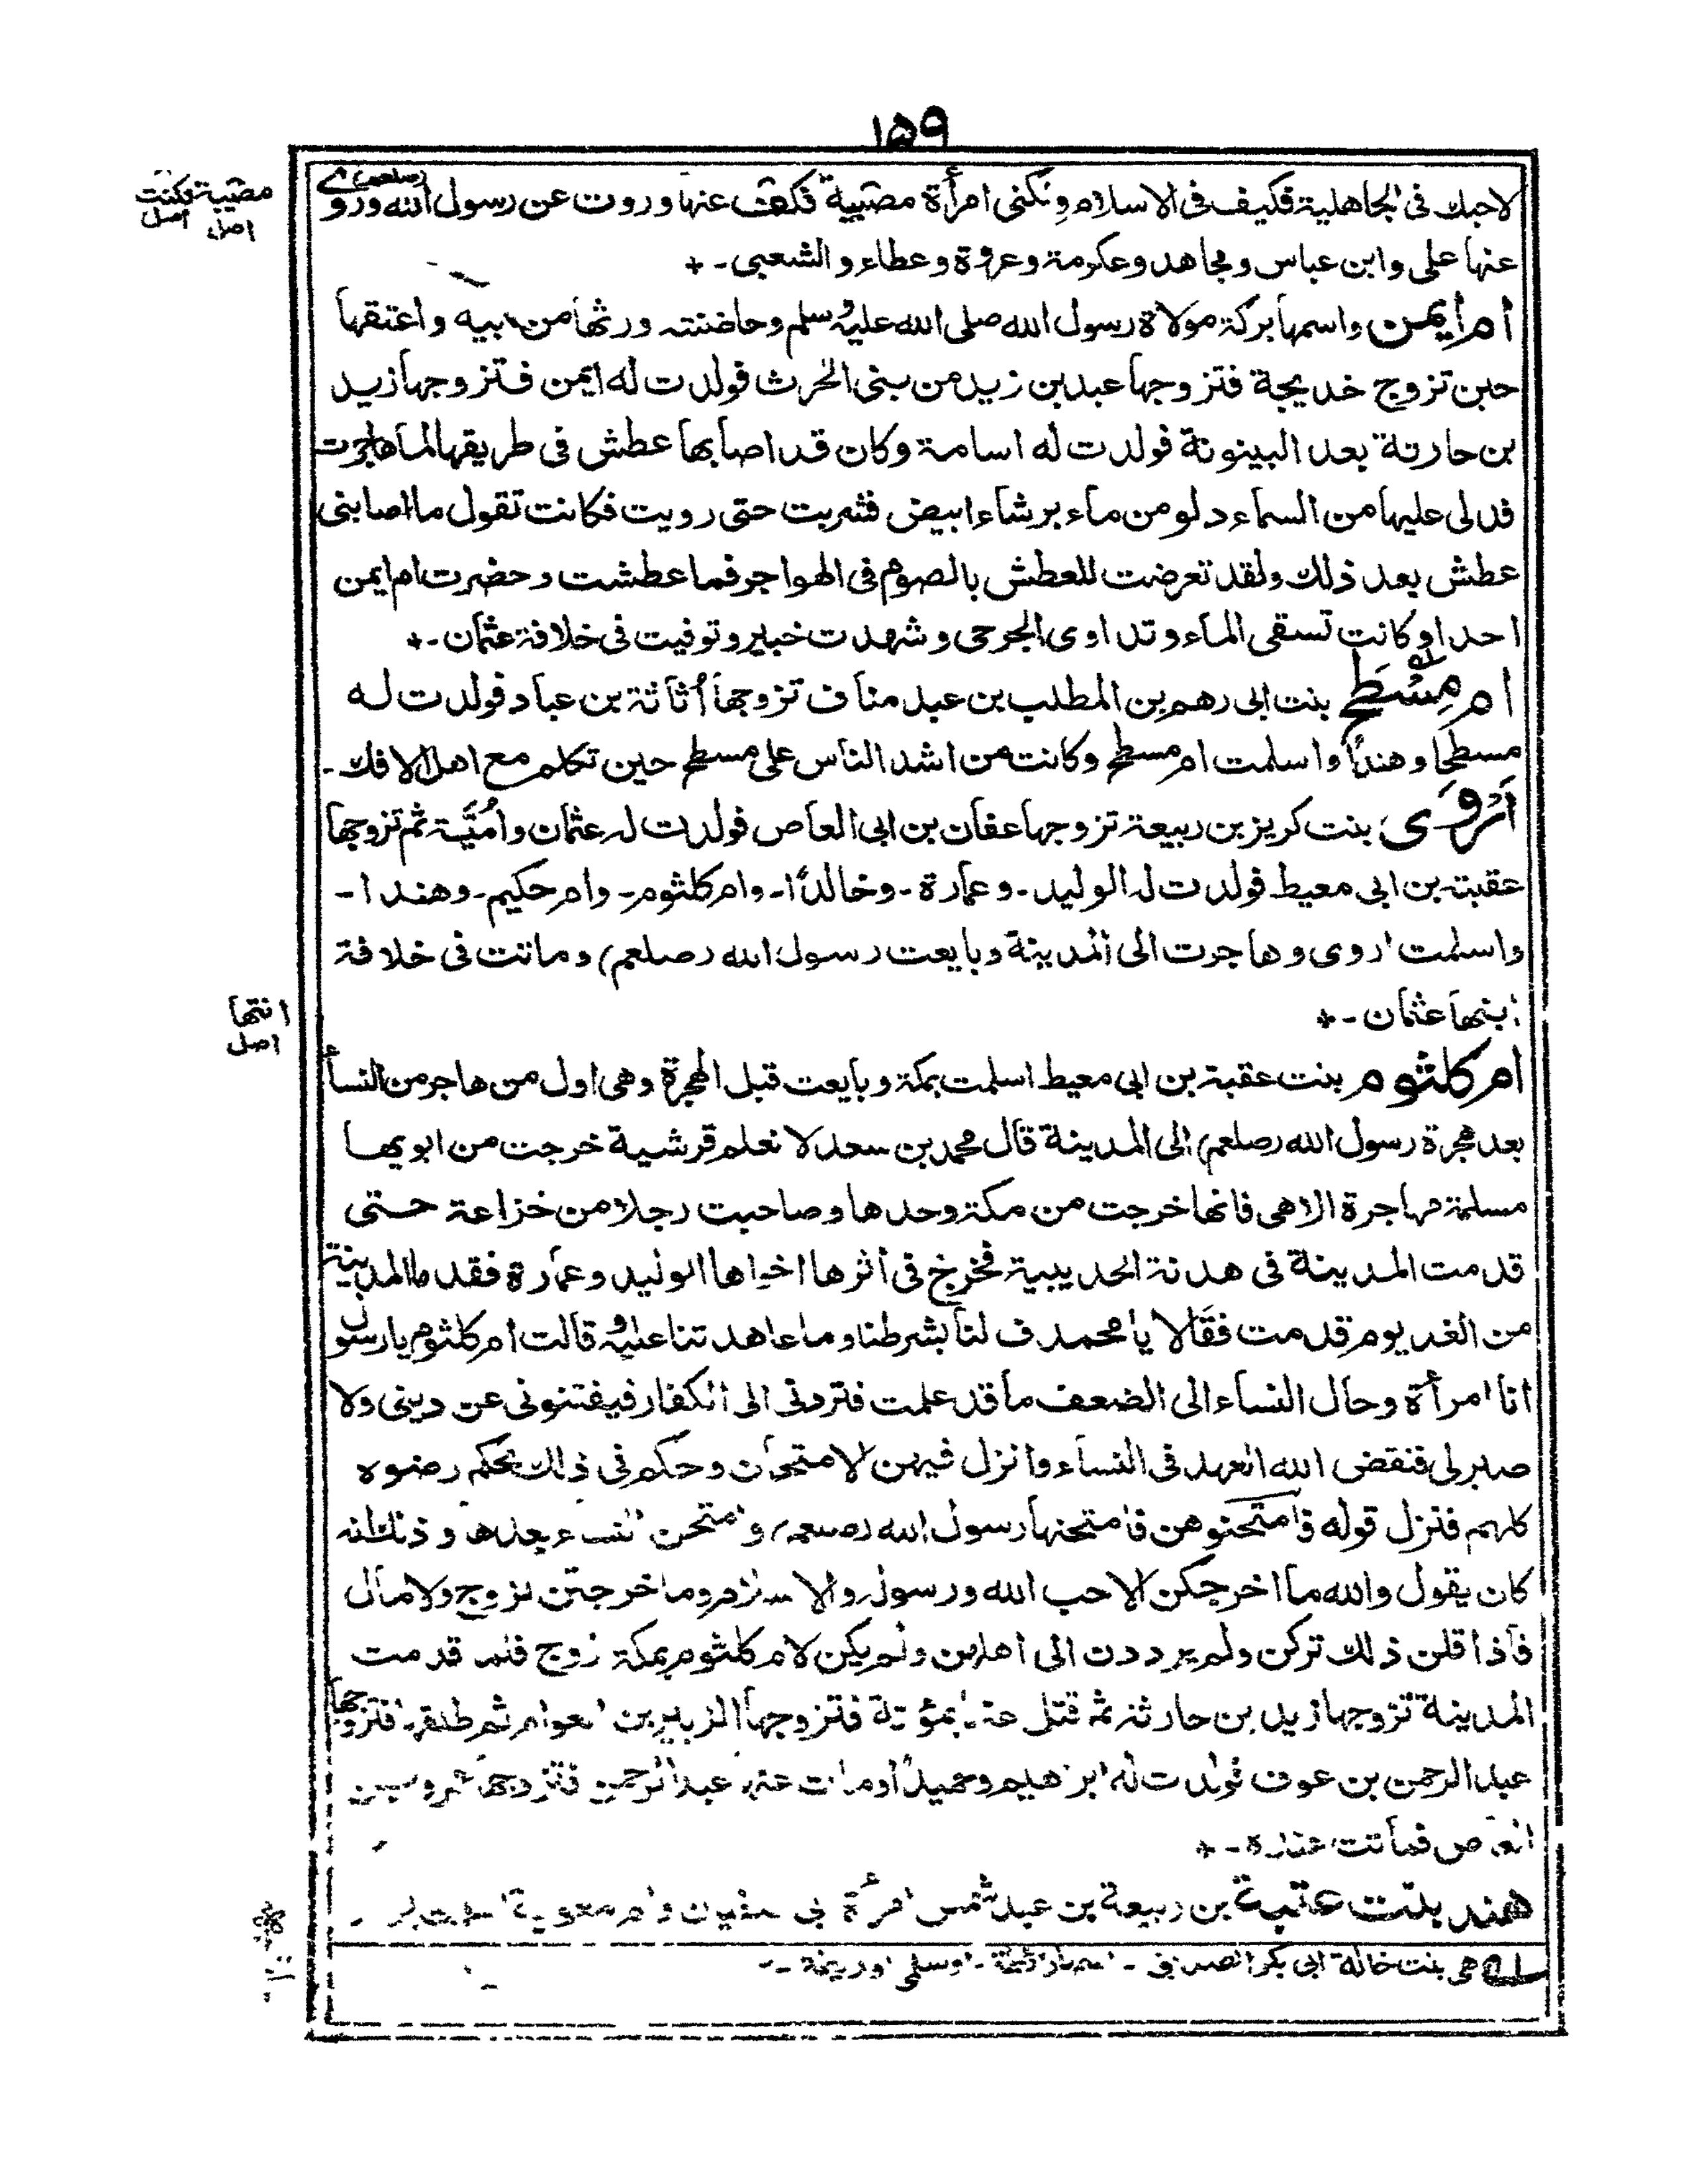 ١٥٩
لاحبك فى الجاهلية فكيف فى الاسلام ونكنى امرأة مصبية فكفت عنها وروت عن رسول الله (صلعم) وروى
عنها على وابن عباس ومجاهد وعكرمة وعروة وعطاء والشعبى -
مصبية فكنت
اصل اصل
ام أيمن واسمها بركة مولاة رسول الله صلى الله عليه وسلم وحاضنته ورثها من ابيه واعتقها
حين تزوج خديجة فتزوجها عبد بن زيد من بنى الحرث فولدت له ايمن فتزوجها زيد
بن حارثة بعد البينونة فولدت له اسامة وكان قد اصابها عطش فى طريقها لما هاجرت
فدلى عليها من السماء دلو من ماء برشاء ابيض فشربت حتى رويت فكانت تقول ما اصابنى
عطش بعد ذلك ولقد تعرضت للعطش بالصوم فى الهواجر فما عطشت وحضرت ام ايمن
احدا وكانت تسقى الماء وتداوى الجرحى وشهدت خيبر وتوفيت فى خلافة عثمان -
ام مِسْطَح بنت ابى رهم بن المطلب بن عبد مناف تزوجها أثاثة بن عباد فولدت له
مسطحا وهنداً واسلمت ام مسطح وكانت من اشد الناس على مسطح حين تكلم مع اهل الافك -
أَرْوَى بنت كريز بن ربيعة تزوجها عفان بن ابى العاص فولدت له عثمان وأُمَيَّة ثم تزوجها
عقبة بن ابى معيط فولدت له الوليد - وعمارة - وخالداً - وام كلثوم - وام حكيم - وهندا -
واسلمت اروى وهاجرت الى المدينة وبايعت رسول الله (صلعم) وماتت فى خلافة
ابنها عثمان -
انتها
اصل
ام كلثوم بنت عقبة بن ابى معيط اسلمت بمكة وبايعت قبل الهجرة وهى اول من هاجر من النسأ
بعد هجرة رسول الله (صلعم) الى المدينة قال محمد بن سعد لا نعلم قرشية خرجت من ابويها
مسلمة مهاجرة الا هى فانها خرجت من مكة وحدها وصاحبت رجلا من خزاعة حتى
قدمت المدينة فى هدنة الحديبية فخرج فى أثرها اخواها الوليد وعمارة فقدما المدينة
من الغد يوم قدمت فقالا يا محمد ف لنا بشرطنا وما عاهدتنا عليه قالت ام كلثوم يا رسول
انا امرأة وحال النساء الى الضعف ما قد علمت فتردنى الى الكفار فيفتنونى عن دينى ولا
صبر لى فنقض الله العهد فى النساء وانزل فيهن الامتحان وحكم فى ذلك بحكم رضوه
كلهم فنزل قوله فامتحنوهن فامتحنها رسول الله (صلعم) وامتحن النساء بعدها وذلك انه
كان يقول والله ما اخرجكن الا حب الله ورسوله والاسلام وما خرجتن لزوج ولا مال
فاذا قلن ذلك تركن ولم يرددن الى اهلهن ولم يكن لام كلثوم بمكة زوج فلما قدمت
المدينة تزوجها زيد بن حارثة ثم قتل عنها بمؤتة فتزوجها الزبير بن العوام ثم طلقها فتزوجها
عبد الرحمن بن عوف فولدت له ابراهيم وحميداً ومات عنها عبد الرحمن فتزوجها عمرو بن
العاص فماتت عنده -
هند بنت عتبة بن ربيعة بن عبد شمس امرأة ابى سفيان وام معوية
له هى بنت خالة ابى بكر الصديق -